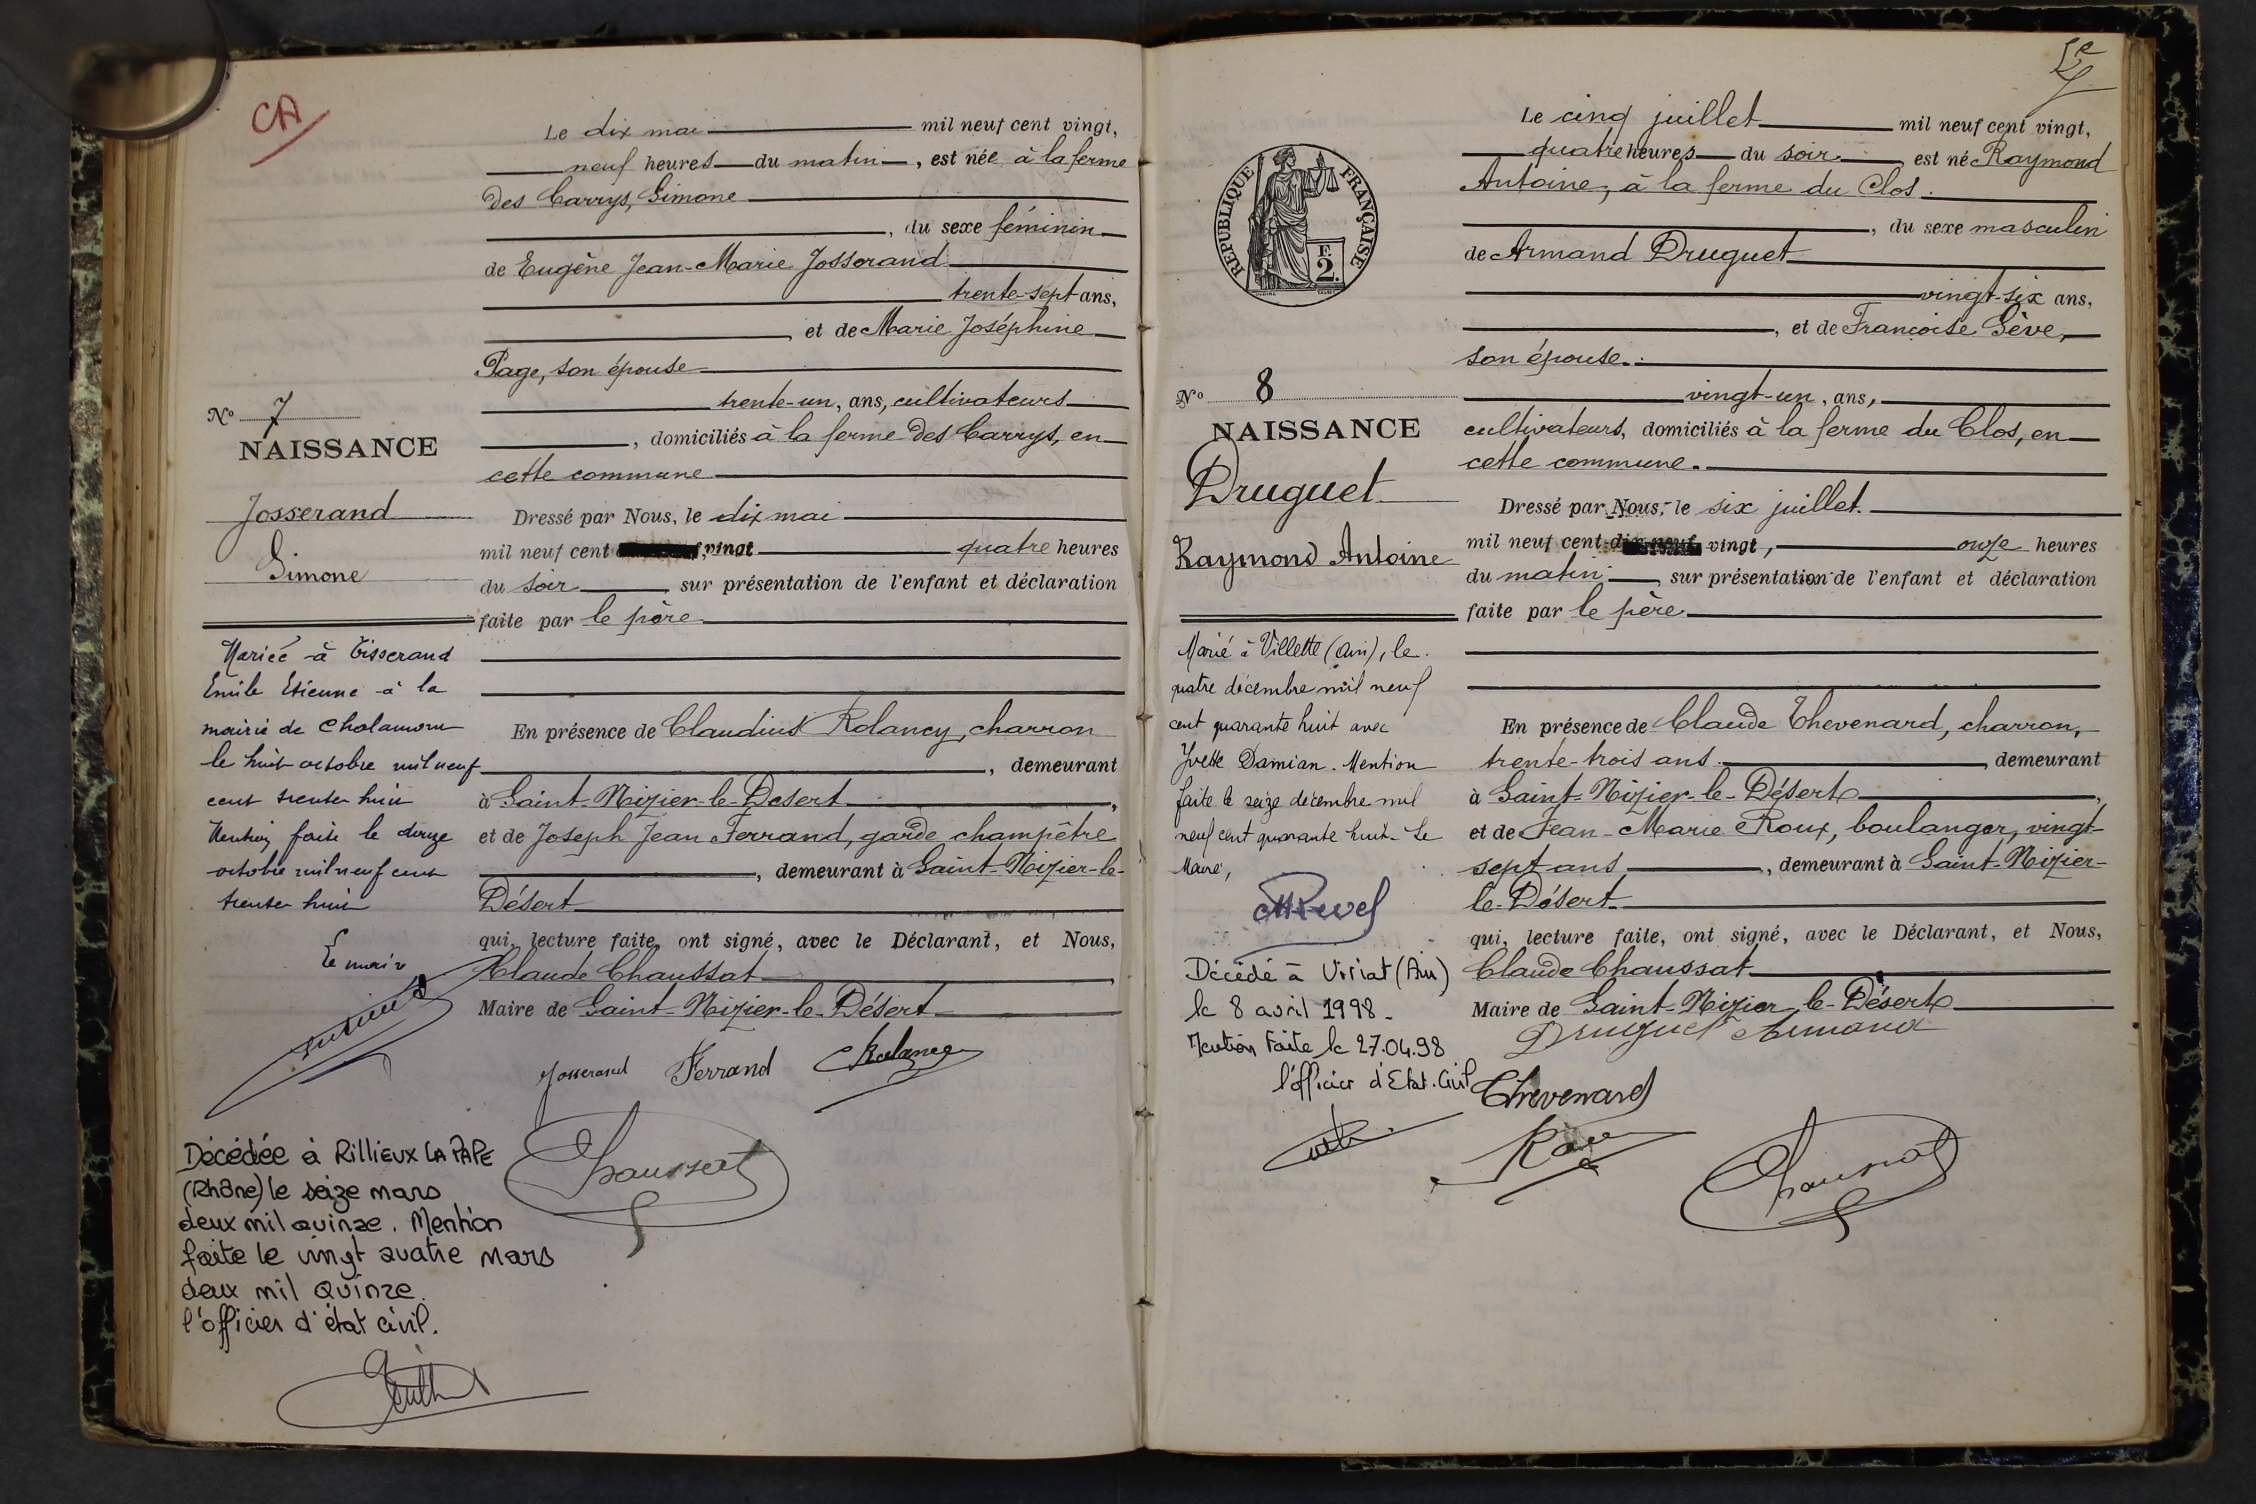 CA
Le dix mai mil neuf cent vingt,
neuf heures du matin, est née à la ferme
des Carrys, Simone
, du sexe féminin
de Eugène Jean-Marie Josserand
trente-sept ans,
, et de Marie Joséphine
Page, son épouse
trente-un, ans, cultivateurs
, domiciliés à la ferme des Carrys, en
cette commune
Dressé par Nous, le dix mai
mil neuf cent vingt quatre heures
du soir, sur présentation de l'enfant et déclaration
faite par le père
En présence de Claudius Rolancy, charron
, demeurant
à Saint-Nizier-le-Désert,
et de Joseph Jean Ferrand, garde champêtre
, demeurant à Saint-Nizier-le-
Désert
qui, lecture faite, ont signé, avec le Déclarant, et Nous,
Claude Chaussat,
Maire de Saint-Nizier-le-Désert
Josserand Ferrand Rolancy
Chaussat
No 7
NAISSANCE
Josserand
Simone
Mariée à Tisserand
Emile Etienne à la
mairie de Chalamont
le huit octobre mil neuf
cent trente huit
Mention faite le douze
octobre mil neuf cent
trente huit
Le maire
Décédée à RILLIEUX LA PAPE
(Rhône) le seize mars
deux mil quinze. Mention
faite le vingt quatre mars
deux mil quinze.
l'officier d'état civil.
5e
REPUBLIQUE FRANÇAISE
F.
2.
Le cinq juillet mil neuf cent vingt,
quatre heures du soir, est né Raymond
Antoine, à la ferme du Clos.
, du sexe masculin
de Armand Druguet
vingt-six ans,
, et de Françoise Sève,
son épouse.
vingt-un, ans,
cultivateurs, domiciliés à la ferme du Clos, en
cette commune.
Dressé par Nous, le six juillet.
mil neuf cent dix-neuf vingt, onze heures
du matin, sur présentation de l'enfant et déclaration
faite par le père
En présence de Claude Thevenard, charron,
trente-trois ans, demeurant
à Saint-Nizier-le-Désert,
et de Jean-Marie Roux, boulanger, vingt-
sept ans, demeurant à Saint-Nizier-
le-Désert
qui, lecture faite, ont signé, avec le Déclarant, et Nous,
Claude Chaussat
Maire de Saint-Nizier-le-Désert
Druguet Armand
Thevenard
Roux
Chaussat
No 8
NAISSANCE
Druguet
Raymond Antoine
Marié à Villette (Ain), le
quatre décembre mil neuf
cent quarante huit avec
Yvette Damian. Mention
faite le seize décembre mil
neuf cent quarante huit. Le
Maire,
Décédé à Viriat (Ain)
le 8 avril 1998.
Mention faite le 27.04.98
l'officier d'Etat. Civil